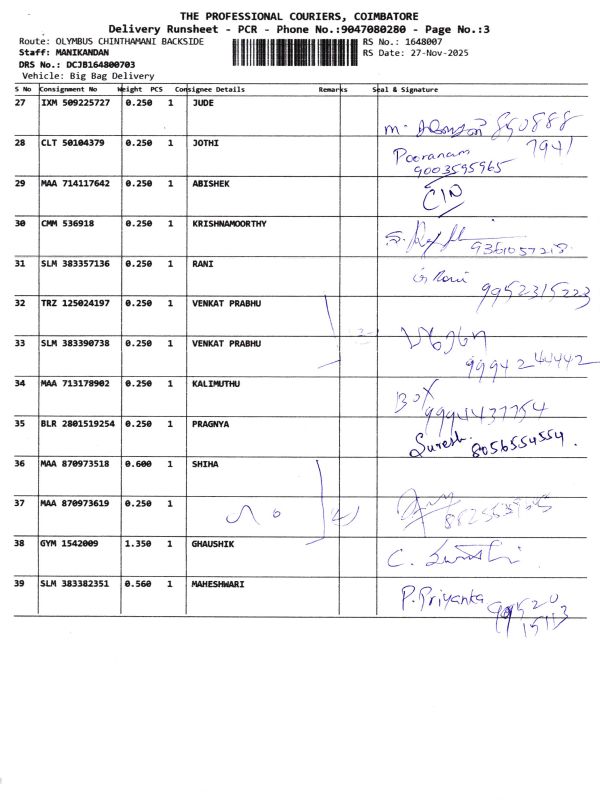 THE PROFESSIONAL COURIERS, COIMBATORE
Delivery Runsheet - PCR - Phone No.:9047080280 - Page No.:3
Route: OLYMBUS CHINTHAMANI BACKSIDE RS No.: 1648007
Staff: MANIKANDAN RS Date: 27-Nov-2025
DRS No.: DCJB164800703
Vehicle: Big Bag Delivery
S No Consignment No Weight PCS Consignee Details Remarks Seal & Signature
27 IXM 509225727 0.250 1 JUDE
28 CLT 50104379 0.250 1 JOTHI Pooranam 7941
9003595965
29 MAA 714117642 0.250 1 ABISHEK
30 CMM 536918 0.250 1 KRISHNAMOORTHY
9361057218
31 SLM 383357136 0.250 1 RANI G Rani
9952315223
32 TRZ 125024197 0.250 1 VENKAT PRABHU
33 SLM 383390738 0.250 1 VENKAT PRABHU
9994244442
34 MAA 713178902 0.250 1 KALIMUTHU BOX
9994437754
35 BLR 2801519254 0.250 1 PRAGNYA Suresh. 8056554554.
36 MAA 870973518 0.600 1 SHIHA
37 MAA 870973619 0.250 1
38 GYM 1542009 1.350 1 GHAUSHIK
39 SLM 383382351 0.560 1 MAHESHWARI P. Priyanka 99520
15113